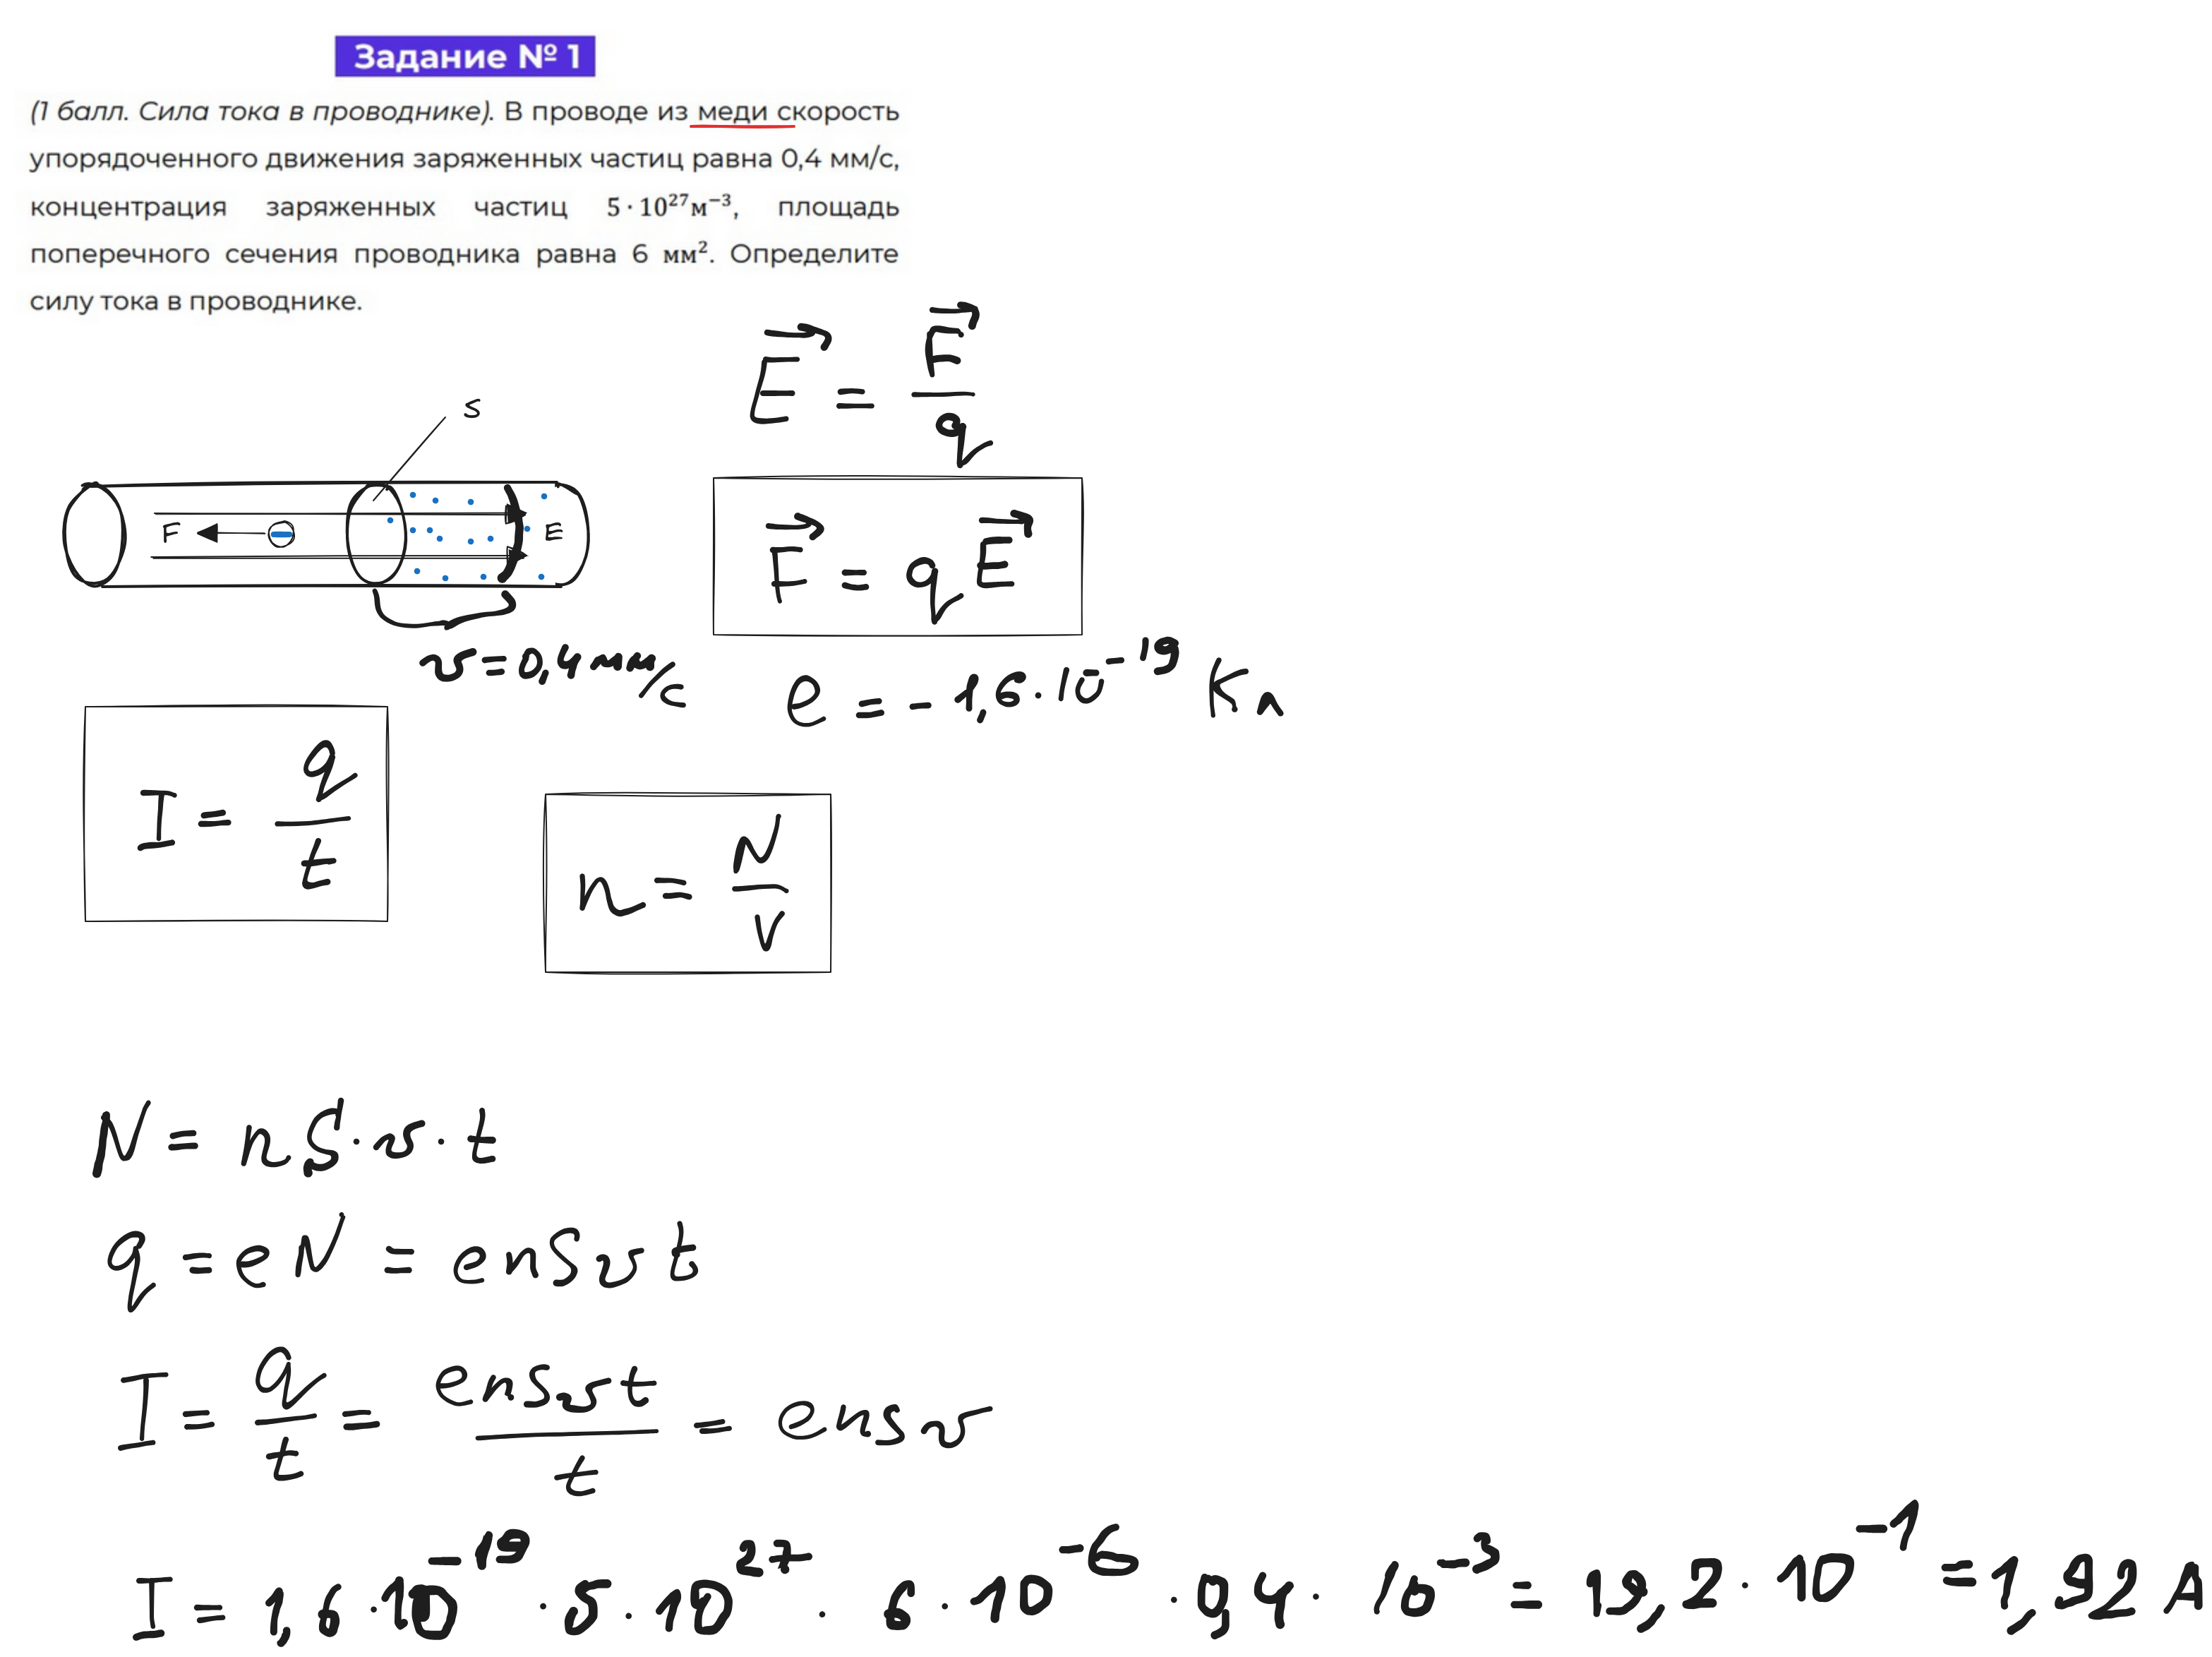 Задание № 1
(1 балл. Сила тока в проводнике). В проводе из меди скорость
упорядоченного движения заряженных частиц равна 0,4 мм/с,
концентрация заряженных частиц 5 · 10²⁷м⁻³, площадь
поперечного сечения проводника равна 6 мм². Определите
силу тока в проводнике.
E⃗ = F⃗/q
S
F
E
F⃗ = q E⃗
v = 0,4 мм/с
e = - 1,6 · 10⁻¹⁹ Кл
I = q/t
n = N/V
N = n S · v · t
q = e N = e n S v t
I = q/t = e n s v t/t = e n s v
I = 1,6 · 10⁻¹⁹ · 5 · 10²⁷ · 6 · 10⁻⁶ · 0,4 · 10⁻³ = 19,2 · 10⁻¹ = 1,92 A